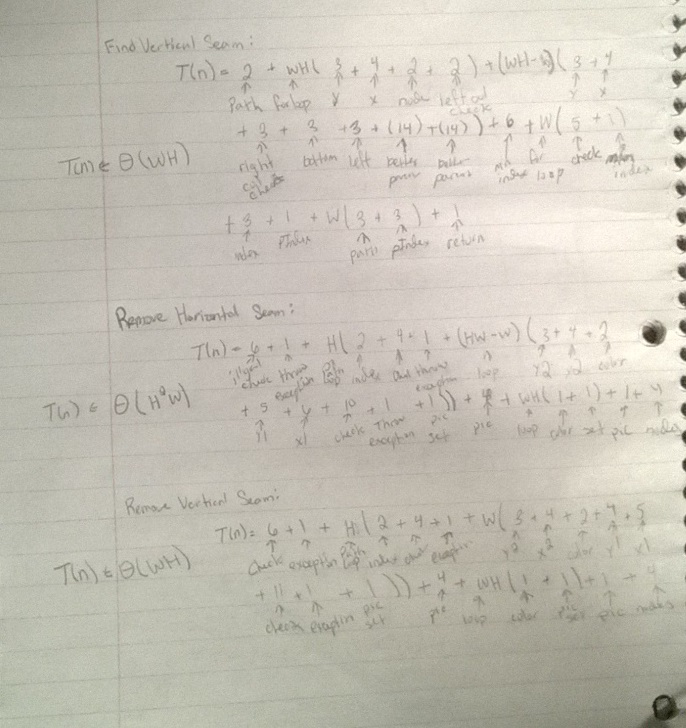 Find Vertical Seam:
T(n) = 2 + WH( 3 + 4 + 2 + 2 ) + (WH-W)( 3 + 4
Path for loop y x node left col check y x
+ 3 + 3 + 3 + (14) + (14) ) + 6 + W( 5 + 1 )
T(n) ∈ Θ(WH)
right col check bottom left better parent better parent min index for loop check index
+ 3 + 1 + W( 3 + 3 ) + 1
index pIndex path pIndex return
Remove Horizontal Seam:
T(n) = 6 + 1 + H( 2 + 4 + 1 + (HW-W)( 3 + 4 + 2
check throw exception loop index throw exception loop y2 x2 color
T(n) ∈ Θ(H²W)
+ 5 + 4 + 10 + 1 + 1 )) + 4 + WH( 1 + 1 ) + 1 + 4
y1 x1 check throw exception pic set pic loop color set pic nodes
Remove Vertical Seam:
T(n) = 6 + 1 + H( 2 + 4 + 1 + W( 3 + 4 + 2 + 4 + 5
check exception loop index exception y2 x2 color y1 x1
T(n) ∈ Θ(WH)
+ 11 + 1 + 1 )) + 4 + WH( 1 + 1 ) + 1 + 4
check exception pic set pic loop color pic set pic nodes